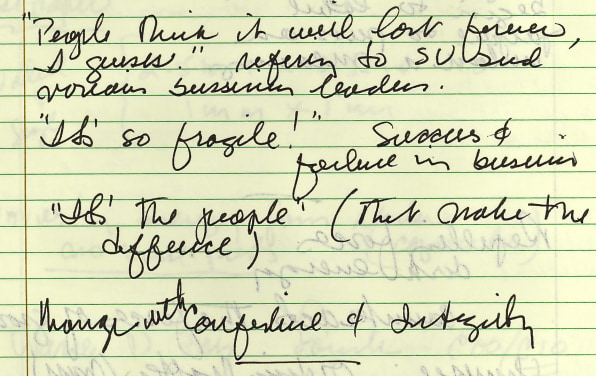 "People think it will last forever,
I guess." refering to SU and
various bussiness leaders.
"It's so fragile!" Success &
failure in bussiness
"It's the people" (that make the
difference)
Manage with Confidence & Integrity